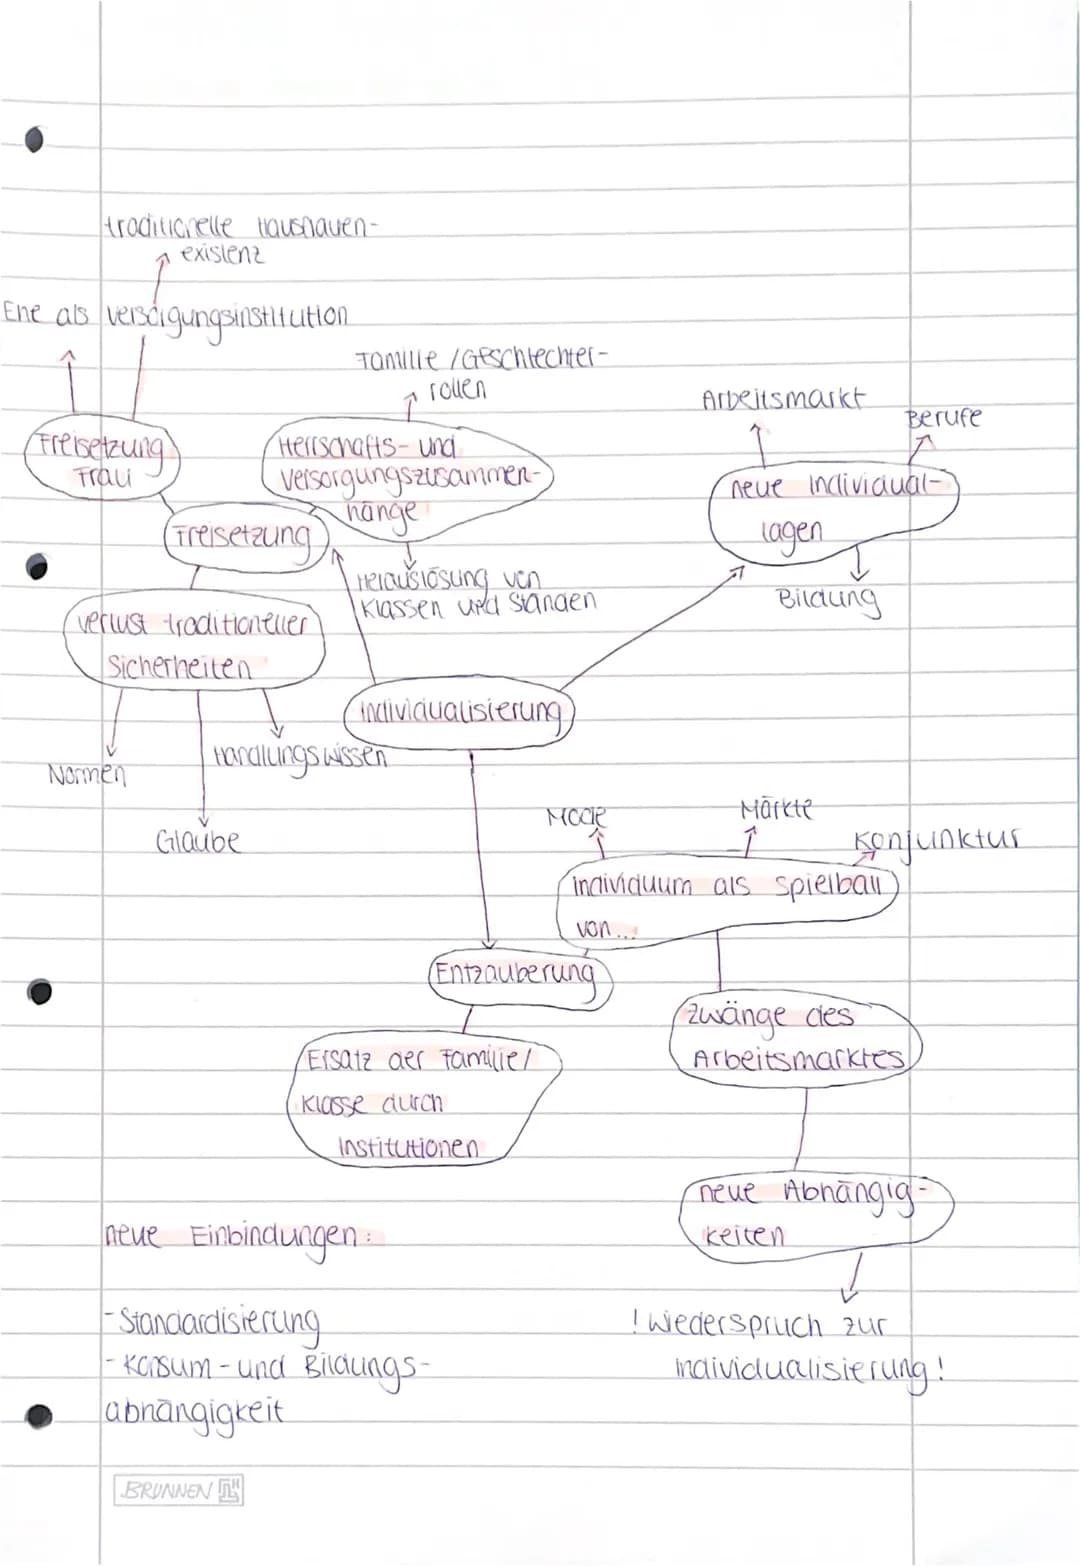 traditionelle Hausfrauen-
existenz
Ehe als Versorgungsinstitution
Familie / Geschlechter-
rollen
Arbeitsmarkt
Berufe
Freisetzung
Frau
Herrschafts- und
Versorgungszusammen-
hänge
neue Individual-
lagen
Freisetzung
Herauslösung von
Klassen und Ständen
Bildung
Verlust traditioneller
Sicherheiten
Individualisierung
Handlungswissen
Normen
Glaube
Mode
Märkte
Konjunktur
Individuum als Spielball
von...
Entzauberung
Zwänge des
Arbeitsmarktes
Ersatz der Familie/
Klasse durch
Institutionen
neue Abhängig-
keiten
neue Einbindungen:
- Standardisierung
- Konsum- und Bildungs-
abhängigkeit
! Wiederspruch zur
Individualisierung!
BRUNNEN